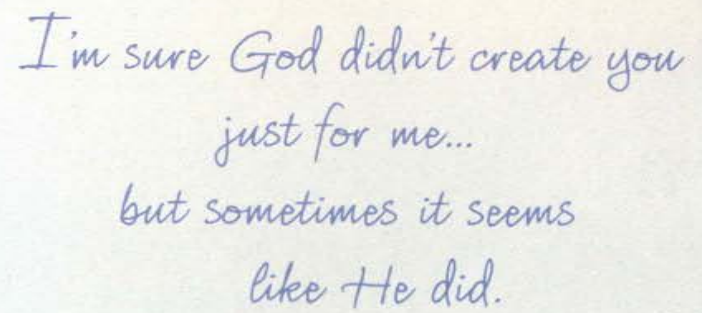 I'm sure God didn't create you
just for me...
but sometimes it seems
like He did.